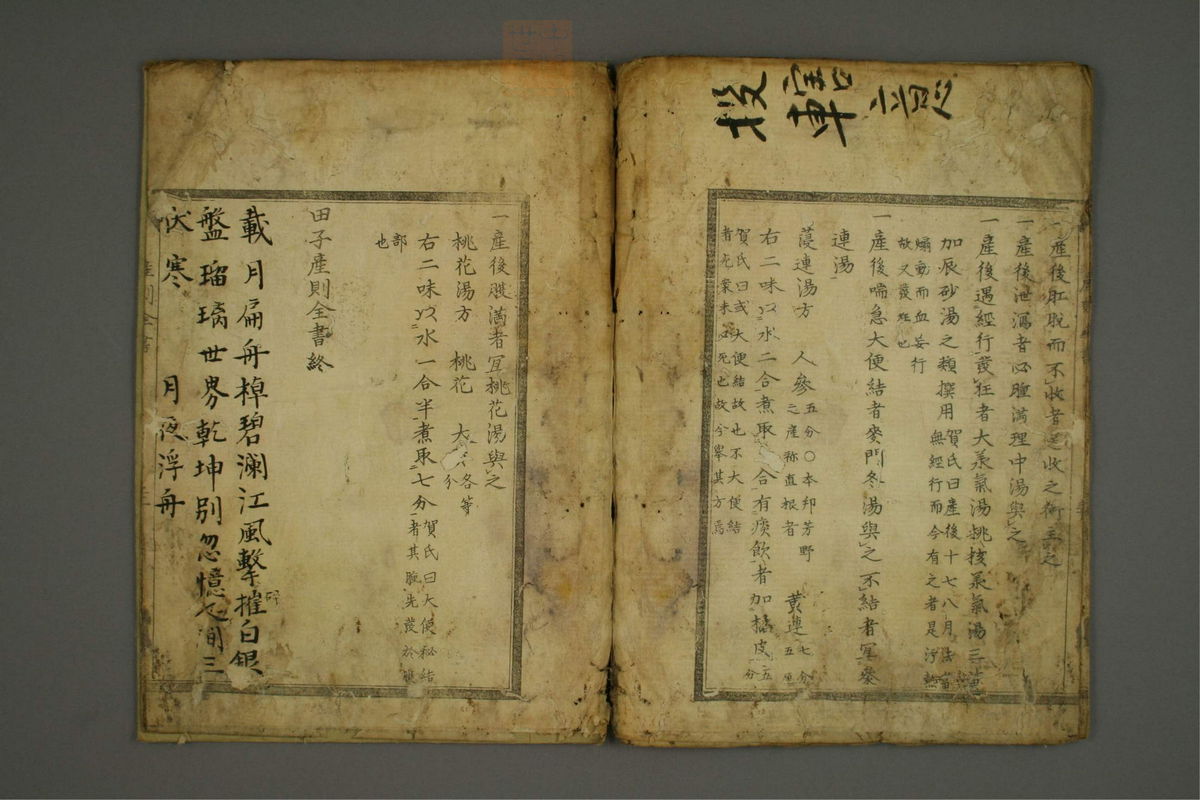 一産後肛脱而不收者是收之術主之
一産後泄瀉者必腫満理中湯與之
一産後遇經行發狂者大兼氣湯桃核兼氣湯三黄
加辰砂湯之類撰用 賀氏曰産後十七八月法當
無經行而今有之者是淤熱
煽動而血妄行
故又發狂也
一産後喘急大便結者麥門冬湯與之不結者宜麥
連湯
蔆連湯方 人參 五分○本邦芳野
之産称直根者 黄連 七分
五厘
右二味以水二合煮取 合有痰飲者加橘皮五分
賀氏曰或大便結故也不大便結
者允棄来必死也故今舉其方焉
一産後脹満者宜桃花湯與之
桃花湯方 桃花 大 各等
分
右二味以水一合半煮取七分 賀氏曰大便秘結
者其腫先發於應
部
也
田子産則全書終
載月扁舟棹碧瀾江風擊摧白銀
盤瑠璃世界乾坤別忽憶人間三
伏寒 月夜浮舟